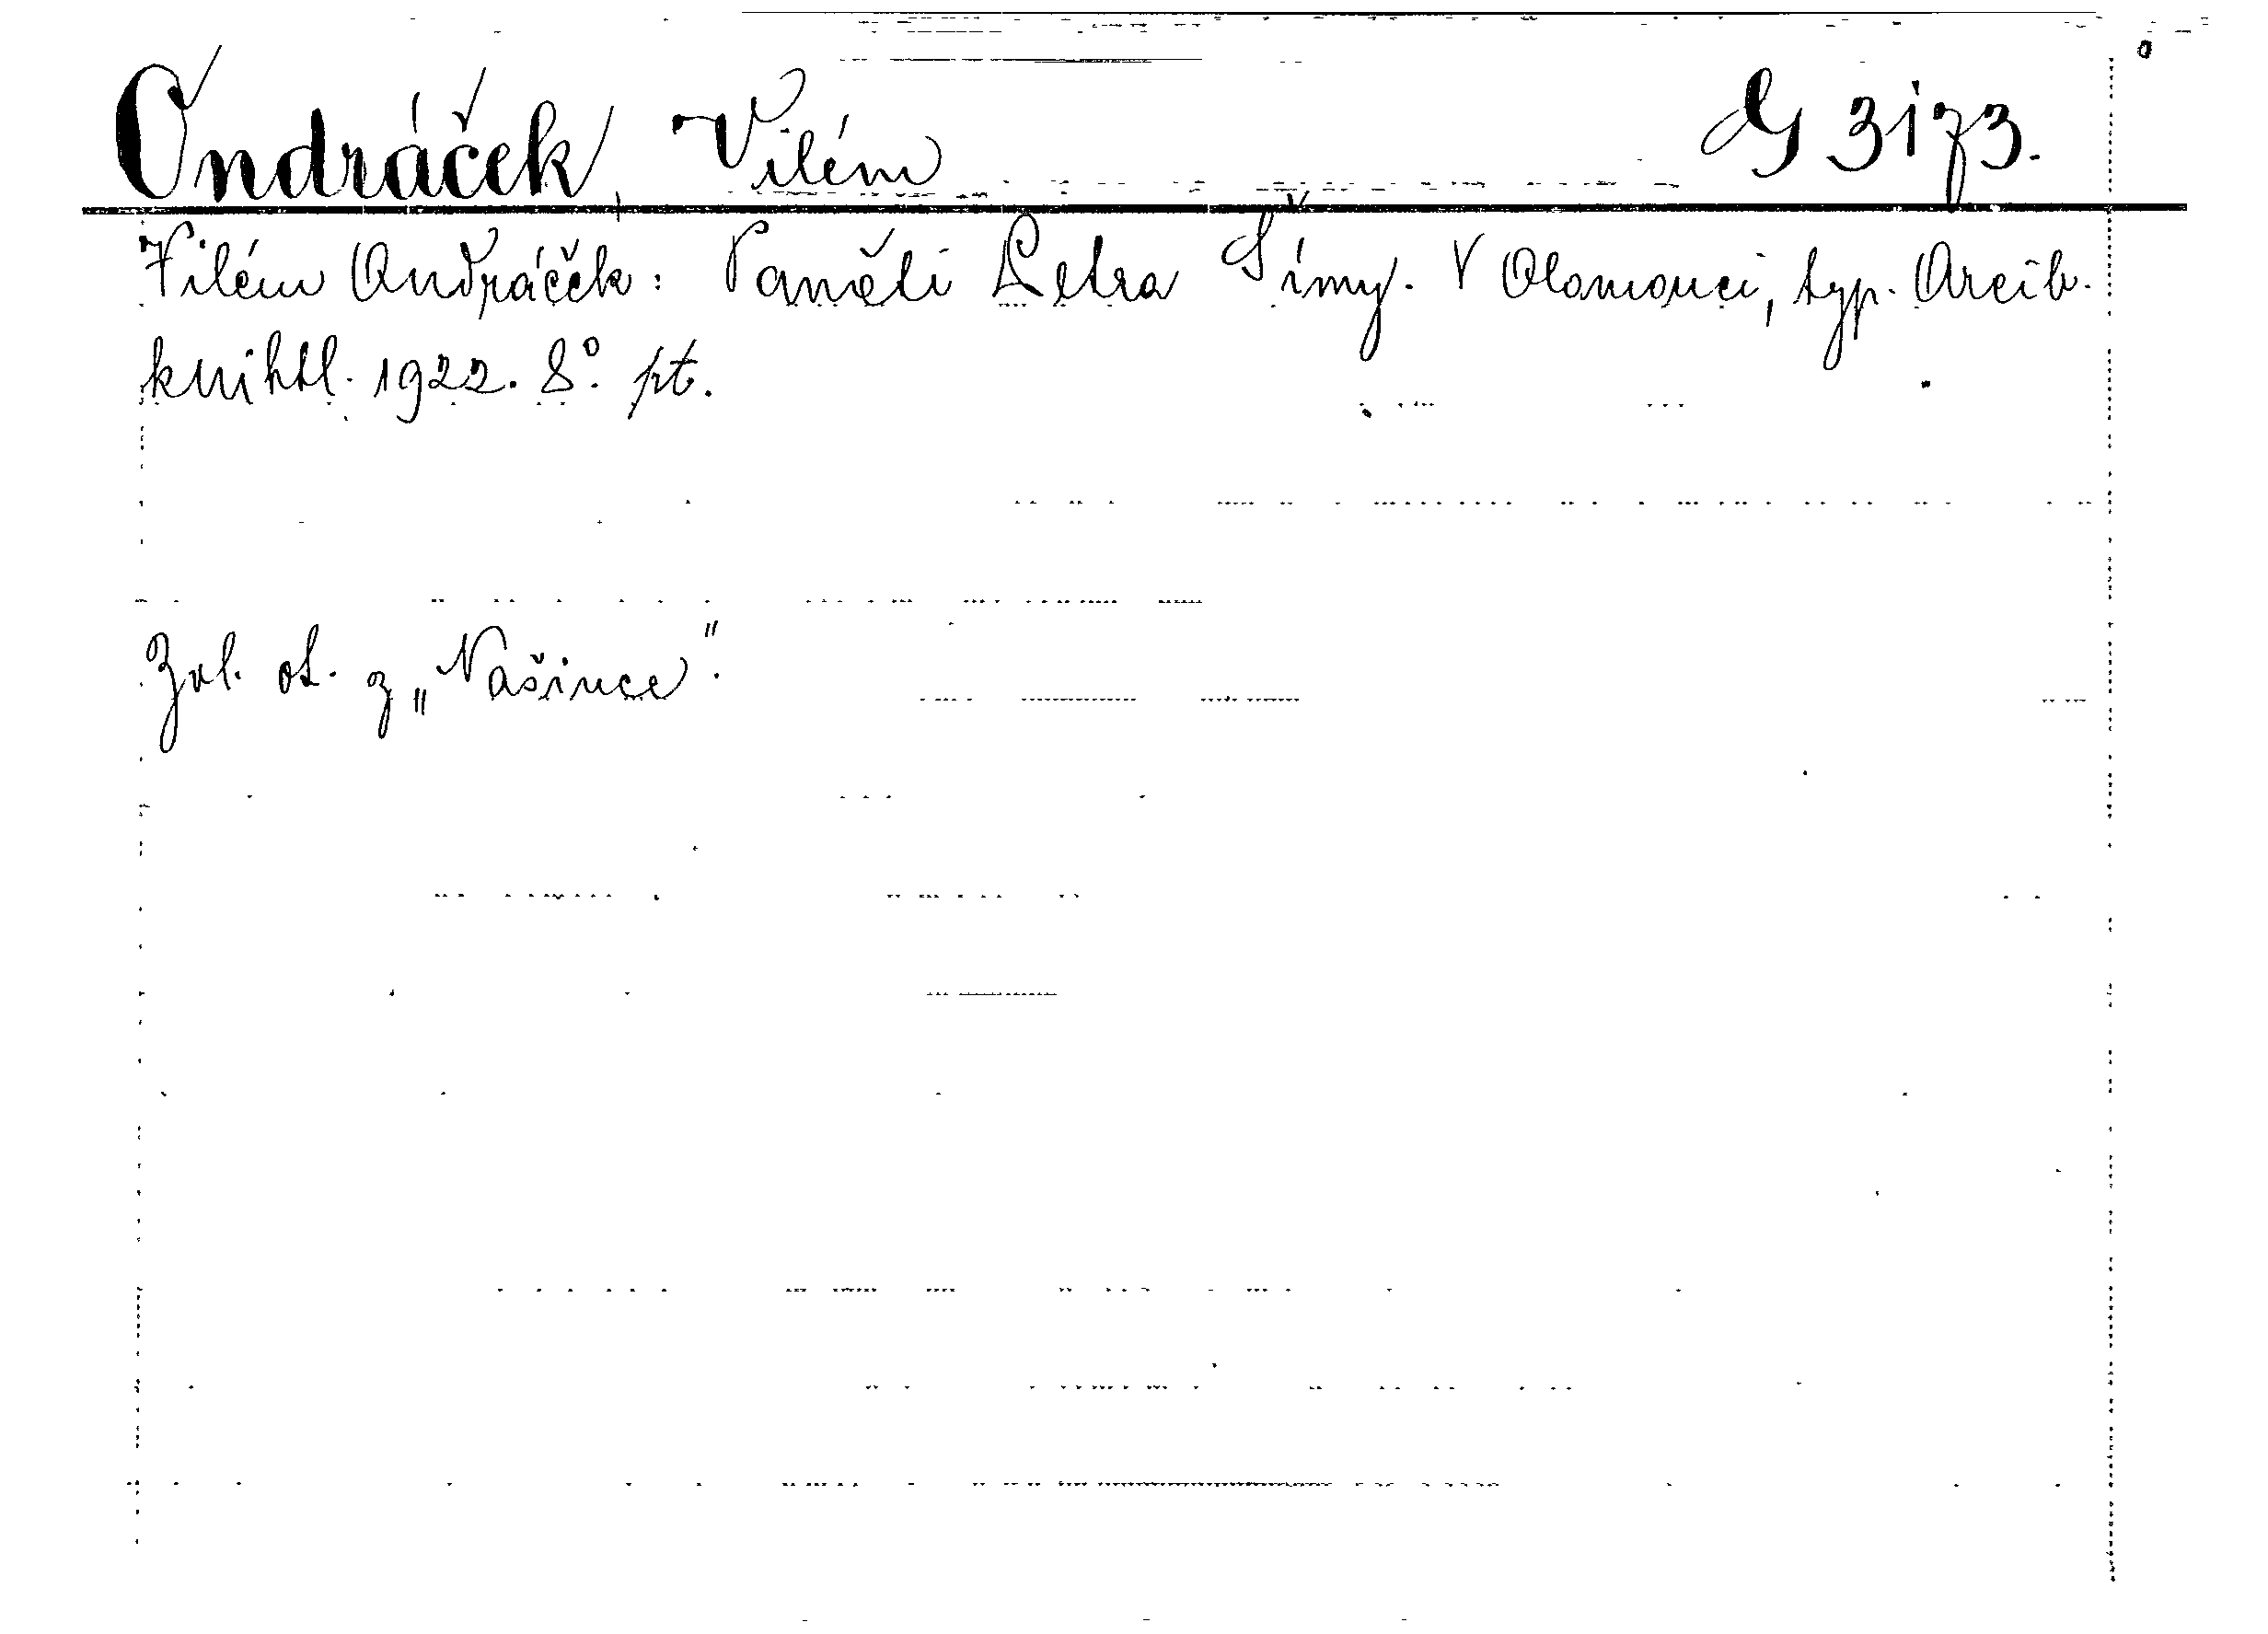 Ondráček, Vilém G 3173.
Vilém Ondráček: Paměti Petra Šímy. V Olomouci, typ. Arcib.
knihtl. 1922. 8°. pt.
Zvl. ot. z „Našince".